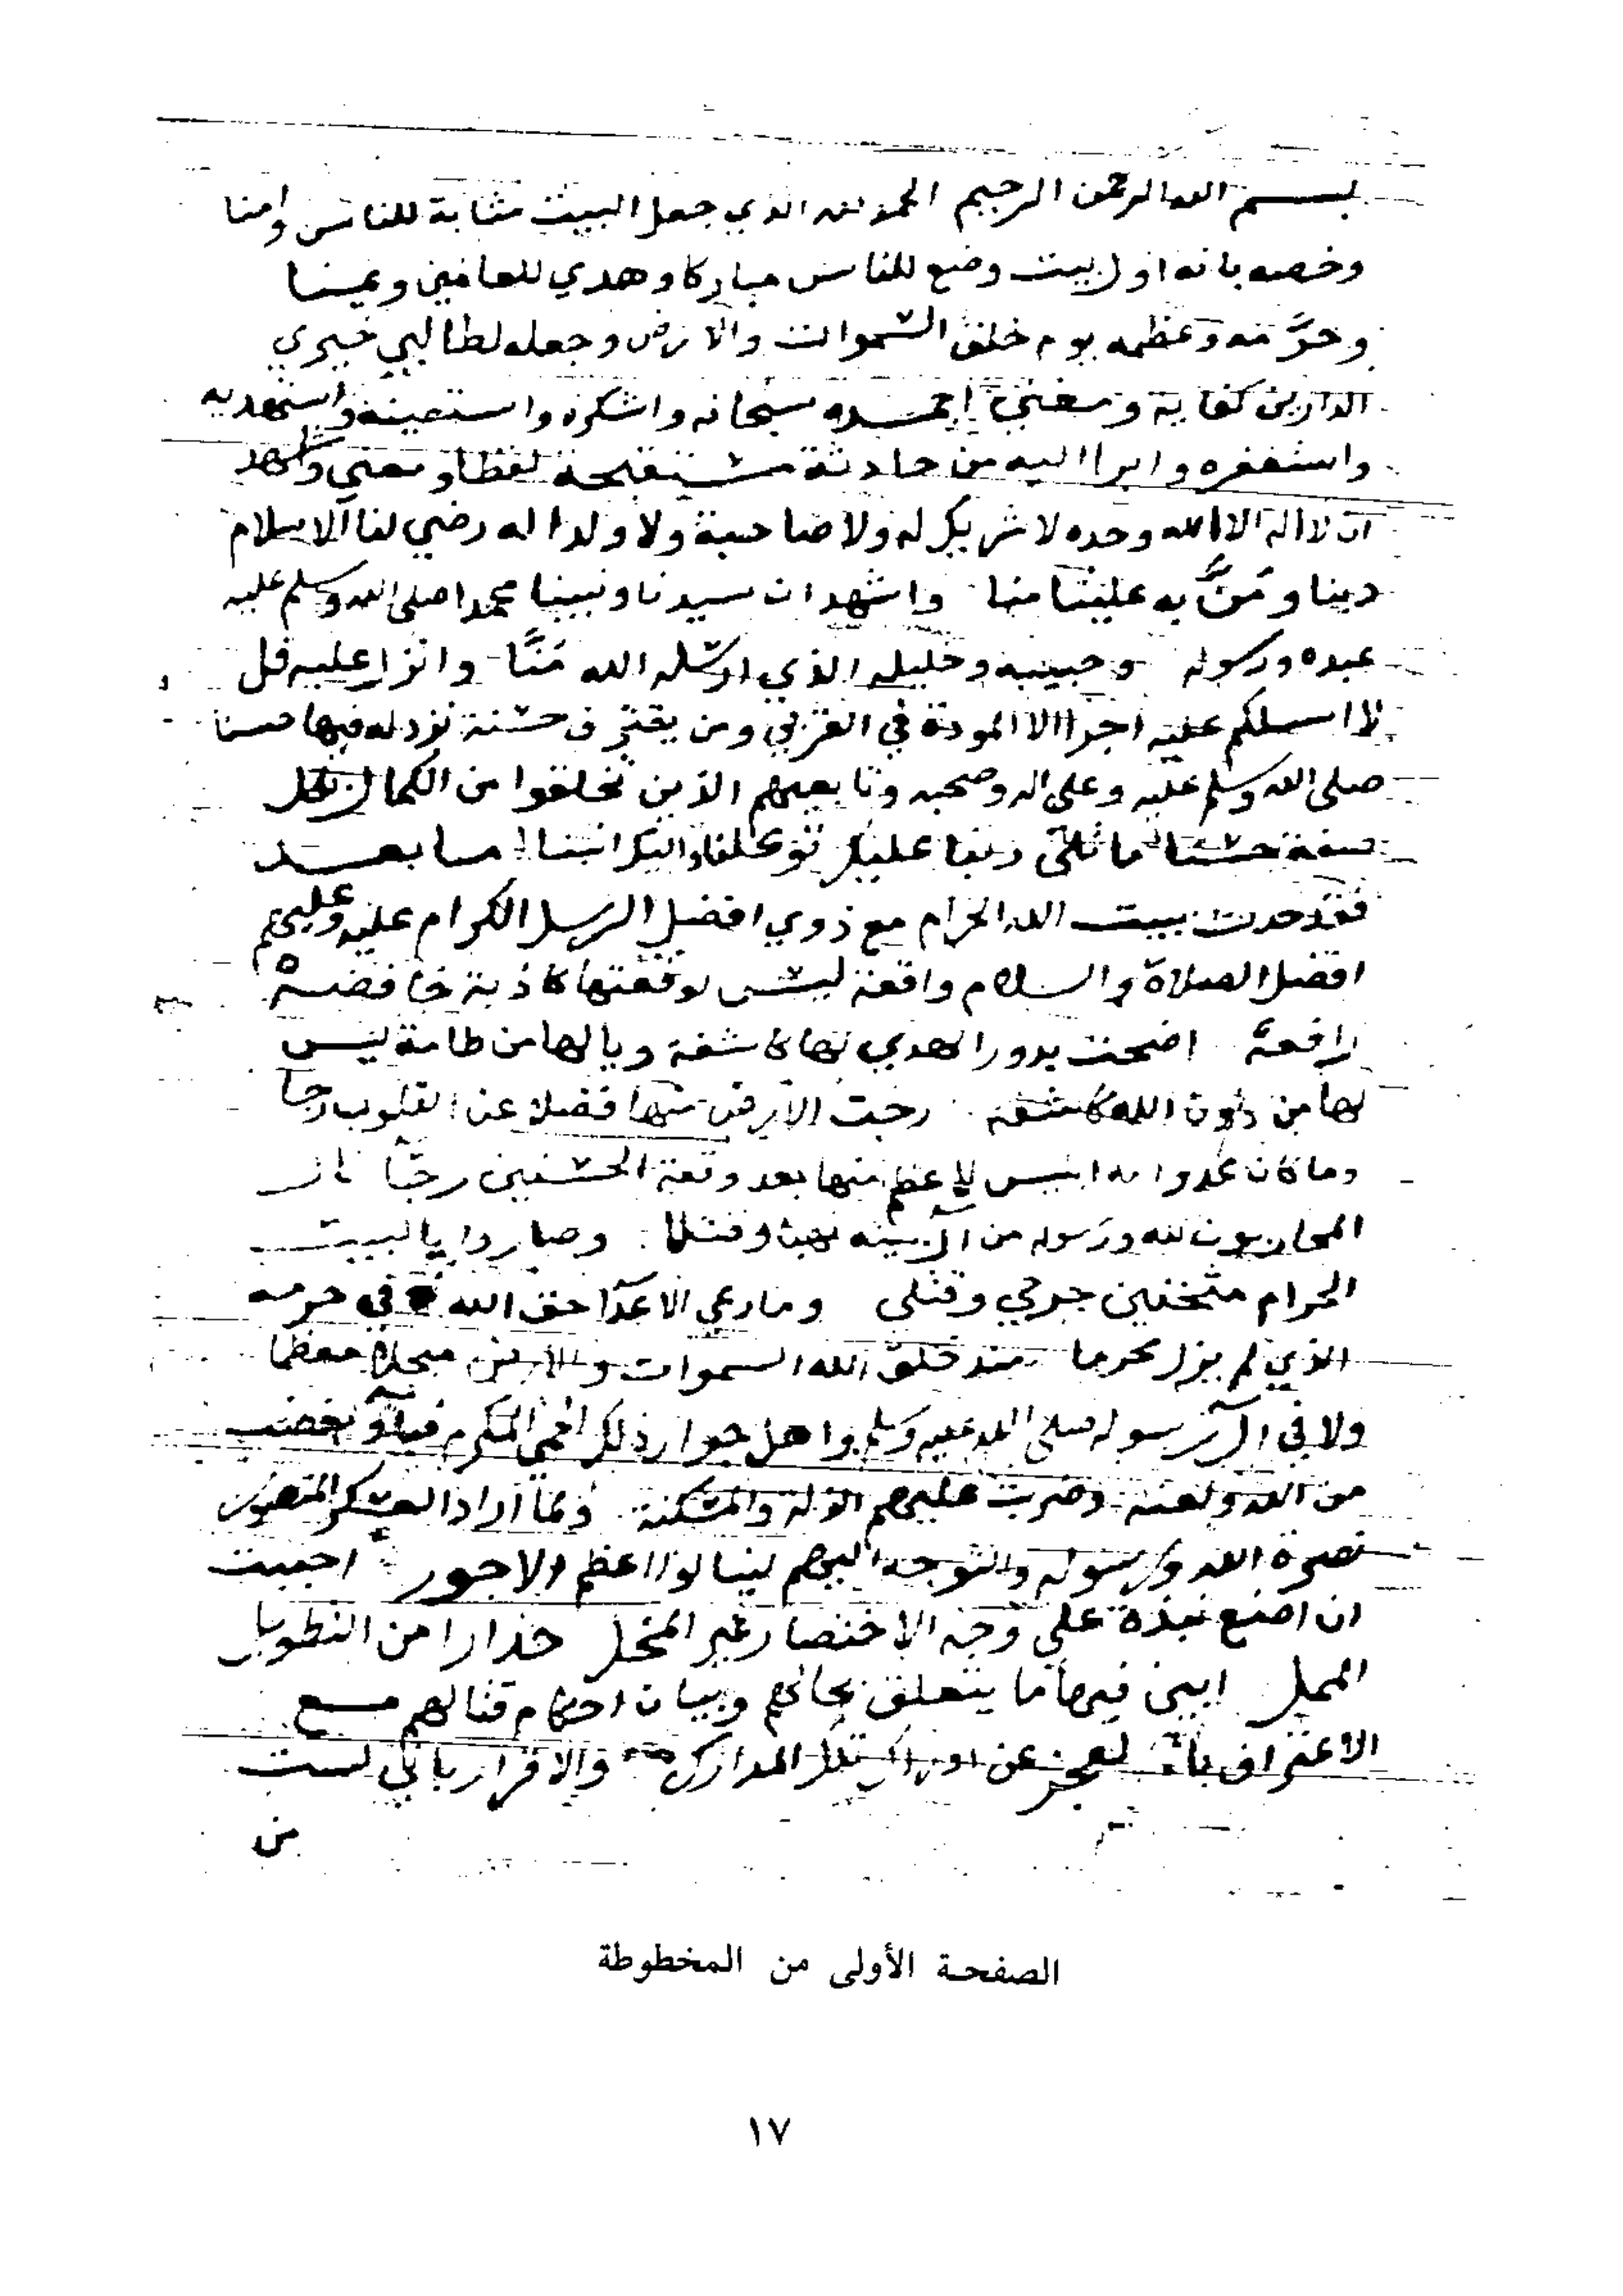 بسم الله الرحمن الرحيم الحمد لله الذي جعل البيت مثابة للناس وامنا
وخصه بانه اول بيت وضع للناس مباركا وهدي للعالمين ويمنا
وحرَّمه وعظمه يوم خلق السموات والارض وجعله لطالبي خيري
الدارين كفاية ومغنى احمده سبحانه واشكره واستعينه واستهديه
واستغفره وابرا اليه من حادثة مستقبحة لفظا ومعني واشهد
ان لا اله الا الله وحده لا شريك له ولا صاحبة ولا ولدا اله رضي لنا الاسلام
دينا ومَنَّ به علينا منا واشهد ان سيدنا ونبينا محمدا صلى الله وسلم عليه
عبده ورسوله وحبيبه وخليله الذي ارسله الله مَنَّا وانزل عليه قل
لا اسلكم عليه اجرا الا المودة في القربي ومن يقترف حسنة نزد له فيها حسنا
صلى الله وسلم عليه وعلى اله وصحبه وتابعيهم الذين تخلقوا من الكمال بكل
صفة حسنا ربنا عليك توكلنا واليك انبنا اما بعد
فقد حدث ببيت الله الحرام مع ذوي افضل الرسل الكرام عليه وعليهم
افضل الصلاة والسلام واقعة ليس لوقعتها كاذبة خافضة
رافعة اضحت بدور الهدي لها كاسفة ويا لها من طامة ليس
لها من دون الله كاشفة رجت الارض منها فضلا عن القلوب رجا
وما كان عدوا لله ابليس لاعظم منها بعد وقعة الحسين رجّا نال
المحاربون لله ورسوله من آل بيته نهبا وقتلا وصاروا بالبيت
الحرام مثخنين جرحي وقتلى وما رعي الاعدا حق الله في حرمه
الذي لم يزل محرما منذ خلق الله السموات والارض مبجلا معظما
ولا في آل رسوله صلى الله عليه وسلم واهل جوار ذلك الحمى المكرم فباؤ بغضب
من الله ولعنه وضربت عليهم الذلة والمسكنة ولما اراد العسكر المنصور
نصرة الله ورسوله والتوجه اليهم لينالوا اعظم الاجور احببت
ان اضع نبذة على وجه الاختصار غير المخل حذارا من التطويل
الممل ابين فيها ما يتعلق بحالهم وبيان احكام قتالهم مع
الاعتراف بال لعجز عن ادراك تلك المدارك والاقرار باني لست
من
الصفحة الأولى من المخطوطة
١٧